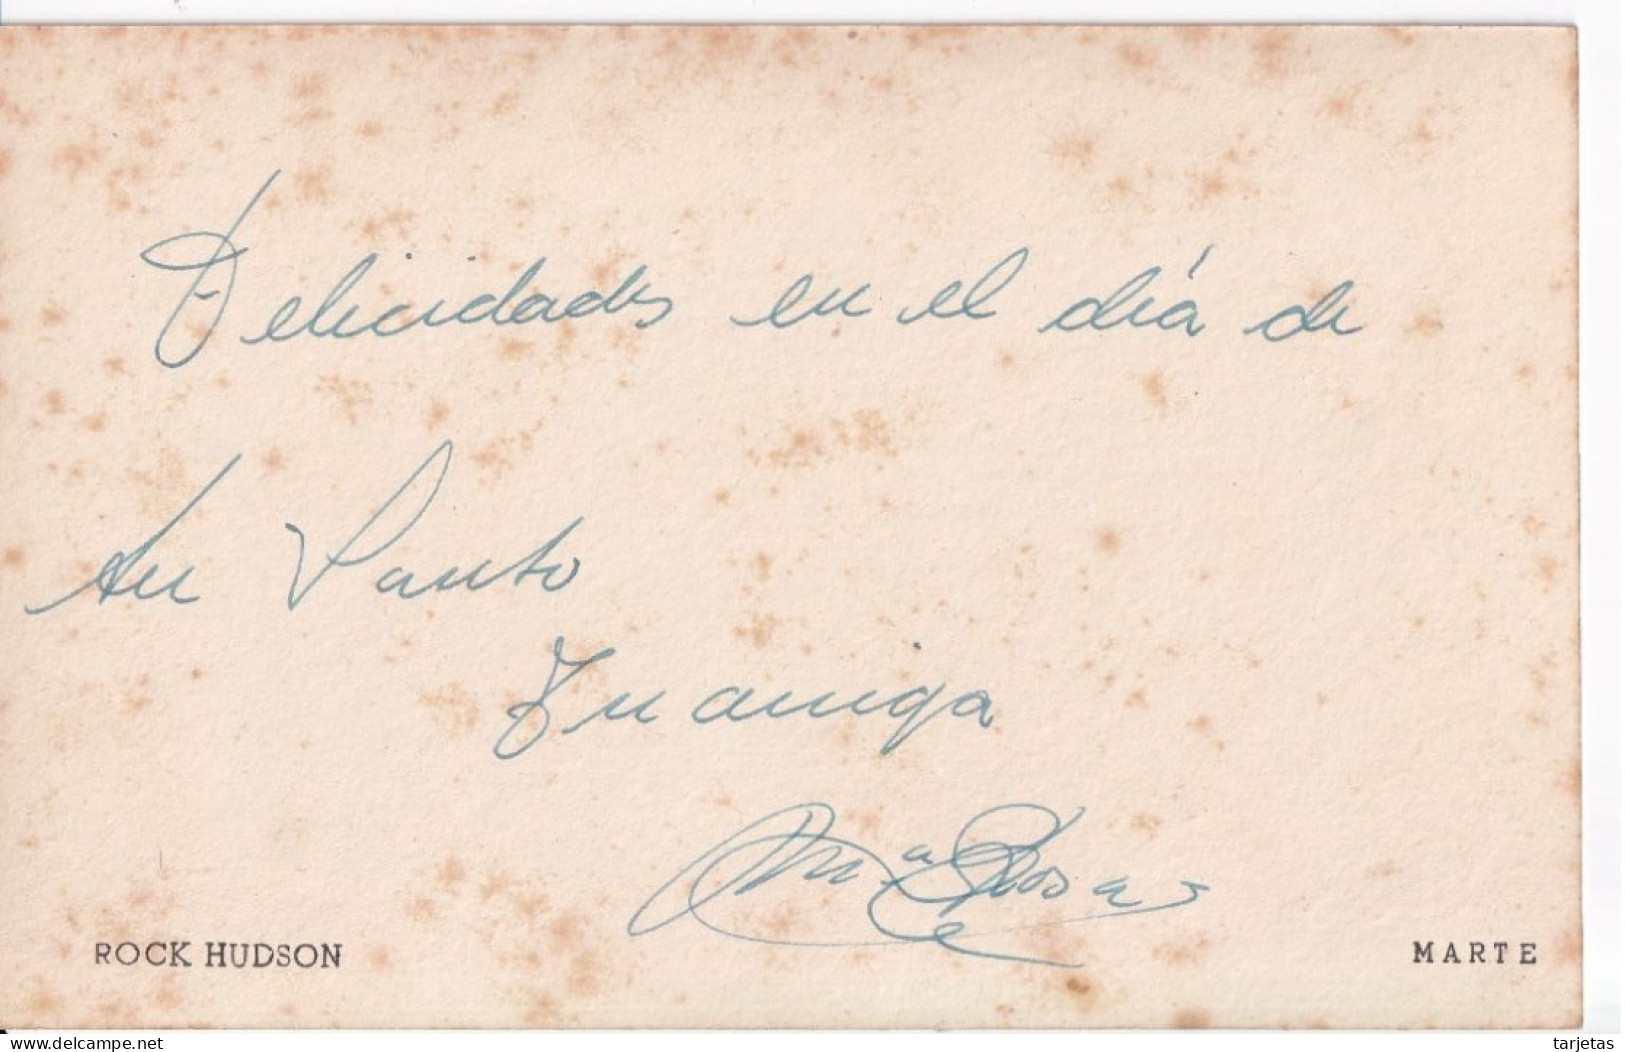 Felicidades en el día de
tu Santo
Tu amiga
Mª Rosa
ROCK HUDSON
MARTE
delcampe.net
tarjetas